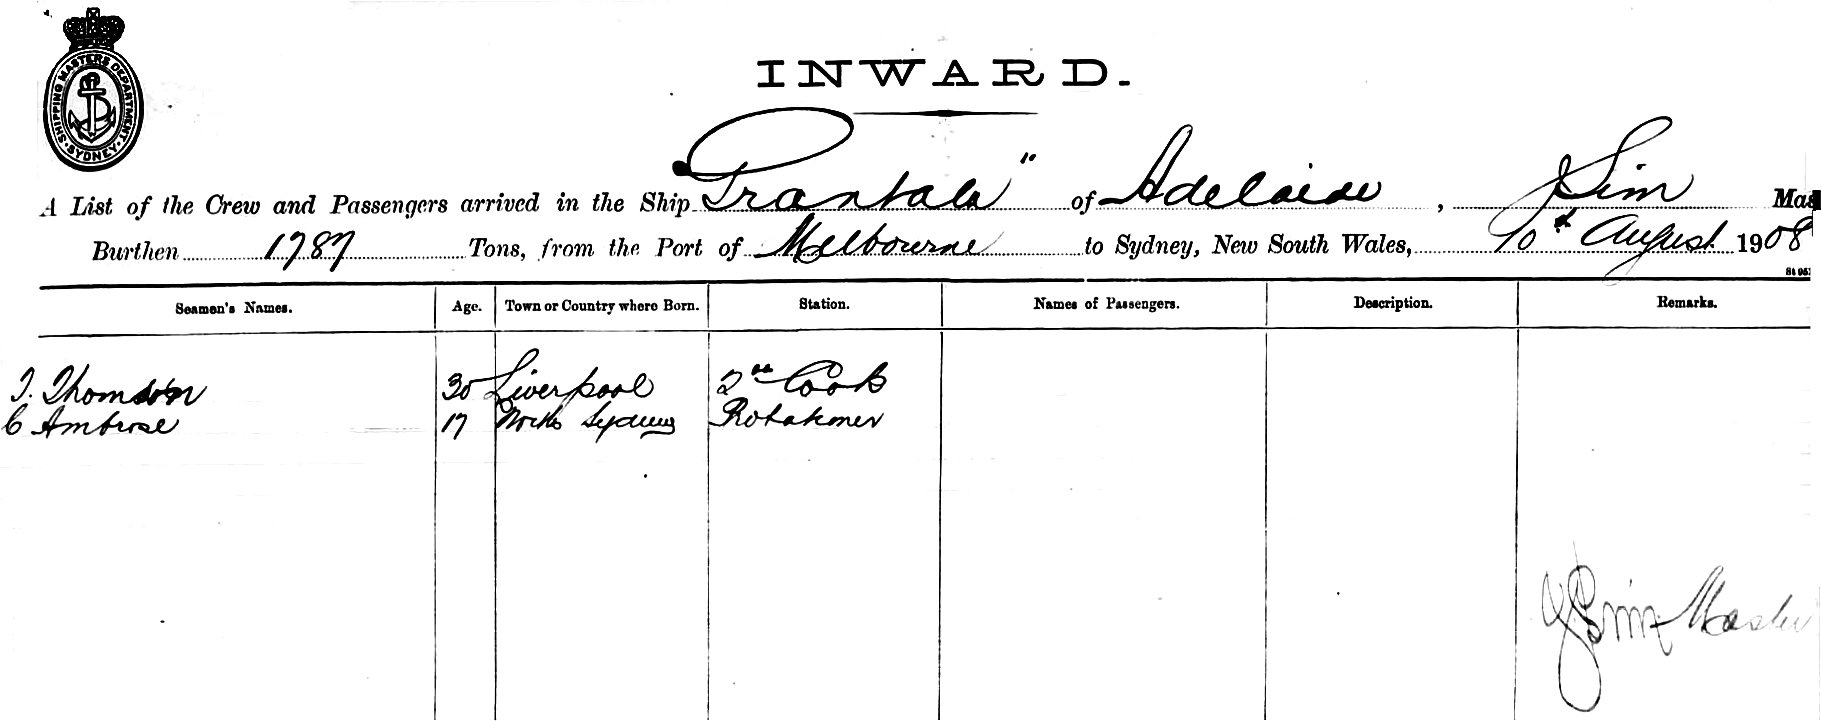 SHIPPING MASTERS DEPARTMENT
SYDNEY
INWARD.
A List of the Crew and Passengers arrived in the Ship "Grantala" of Adelaide, Sim Mas
Burthen 1787 Tons, from the Port of Melbourne to Sydney, New South Wales, 10th August 1908
Seamen's Names. Age. Town or Country where Born. Station. Names of Passengers. Description. Remarks.
Thomson 30 Liverpool 2nd Cook
C Ambrose 17 North Sydney
Sim Master